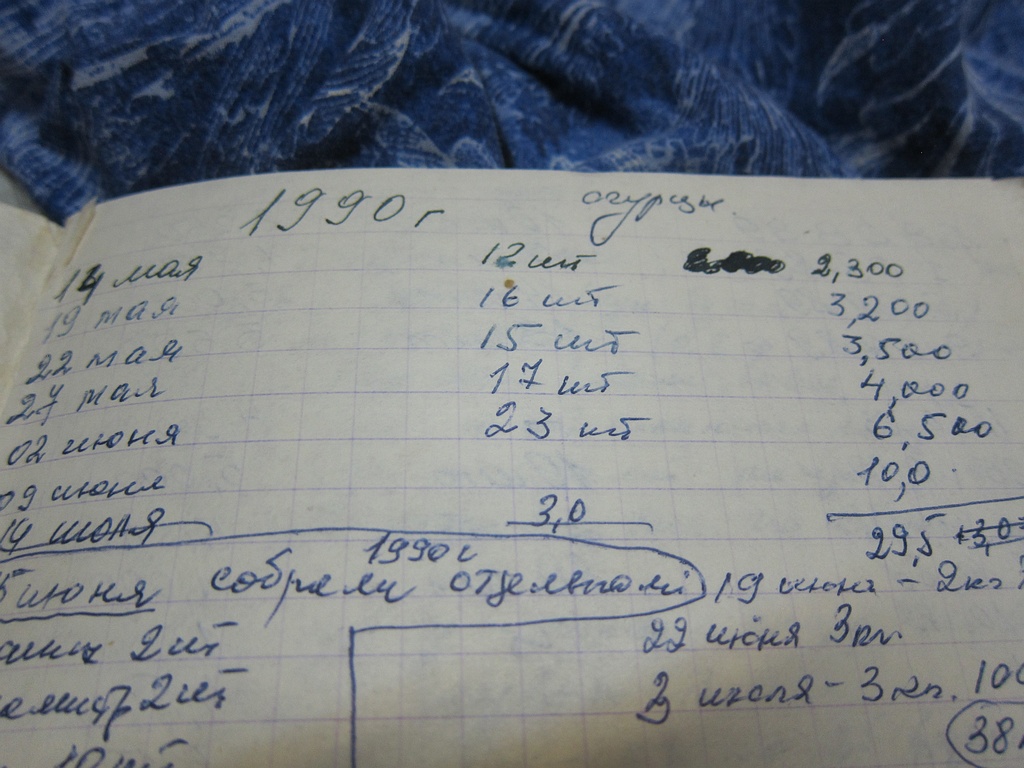 1990г огурцы
14 мая 12 шт 2,300
19 мая 16 шт 3,200
22 мая 15 шт 3,500
27 мая 17 шт 4,000
02 июня 23 шт 6,500
09 июня 10,0
14 июня 3,0
29,5 +3,0
1990г
5 июня собрали 19 июня - 2кг
2 шт 22 июня 3кг
2 шт 3 июля - 3 кг. 100
10 шт 38